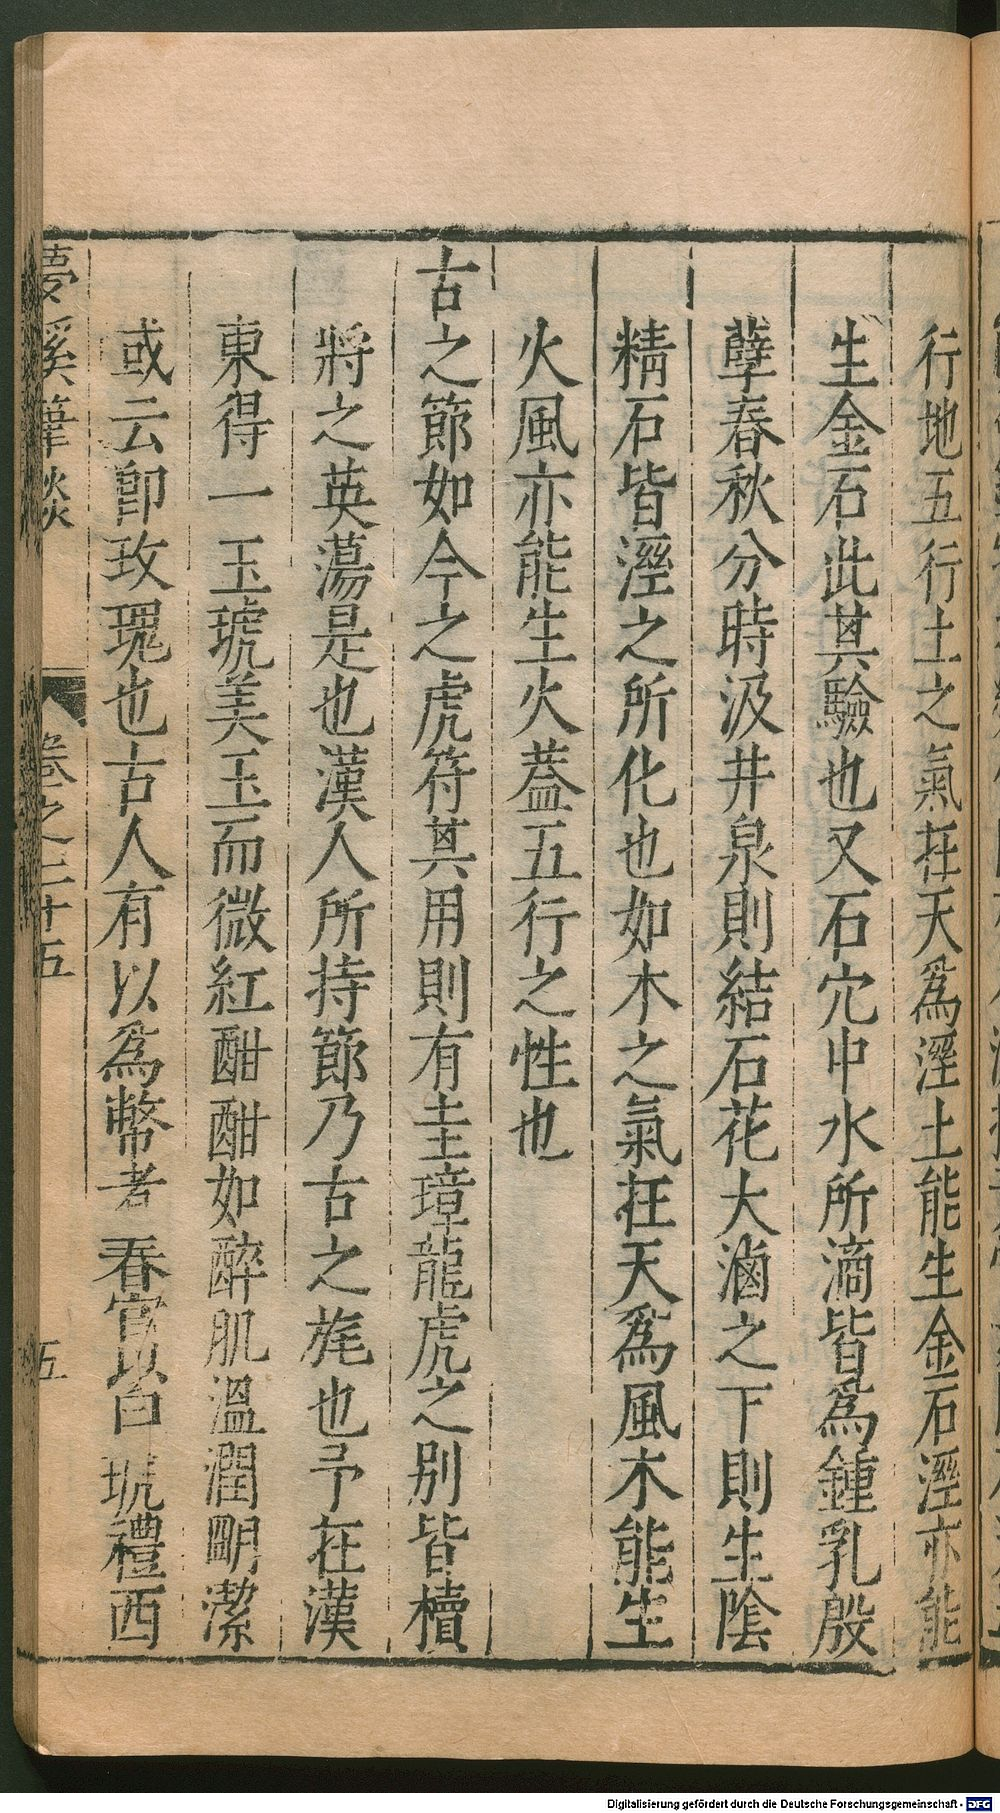 行地五行土之氣在天爲溼土能生金石溼亦能
生金石此其驗也又石穴中水所滴皆爲鍾乳殷
孽春秋分時汲井泉則結石花大滷之下則生陰
精石皆溼之所化也如木之氣在天爲風木能生
火風亦能生火蓋五行之性也
古之節如今之虎符其用則有圭璋龍虎之別皆櫝
將之英蕩是也漢人所持節乃古之旄也予在漢
東得一玉琥美玉而微紅酣酣如醉肌溫潤明潔
或云卽玫瑰也古人有以爲幣者春官以白琥禮西
夢溪筆談
卷之二十五
五
Digitalisierung gefördert durch die Deutsche Forschungsgemeinschaft - DFG